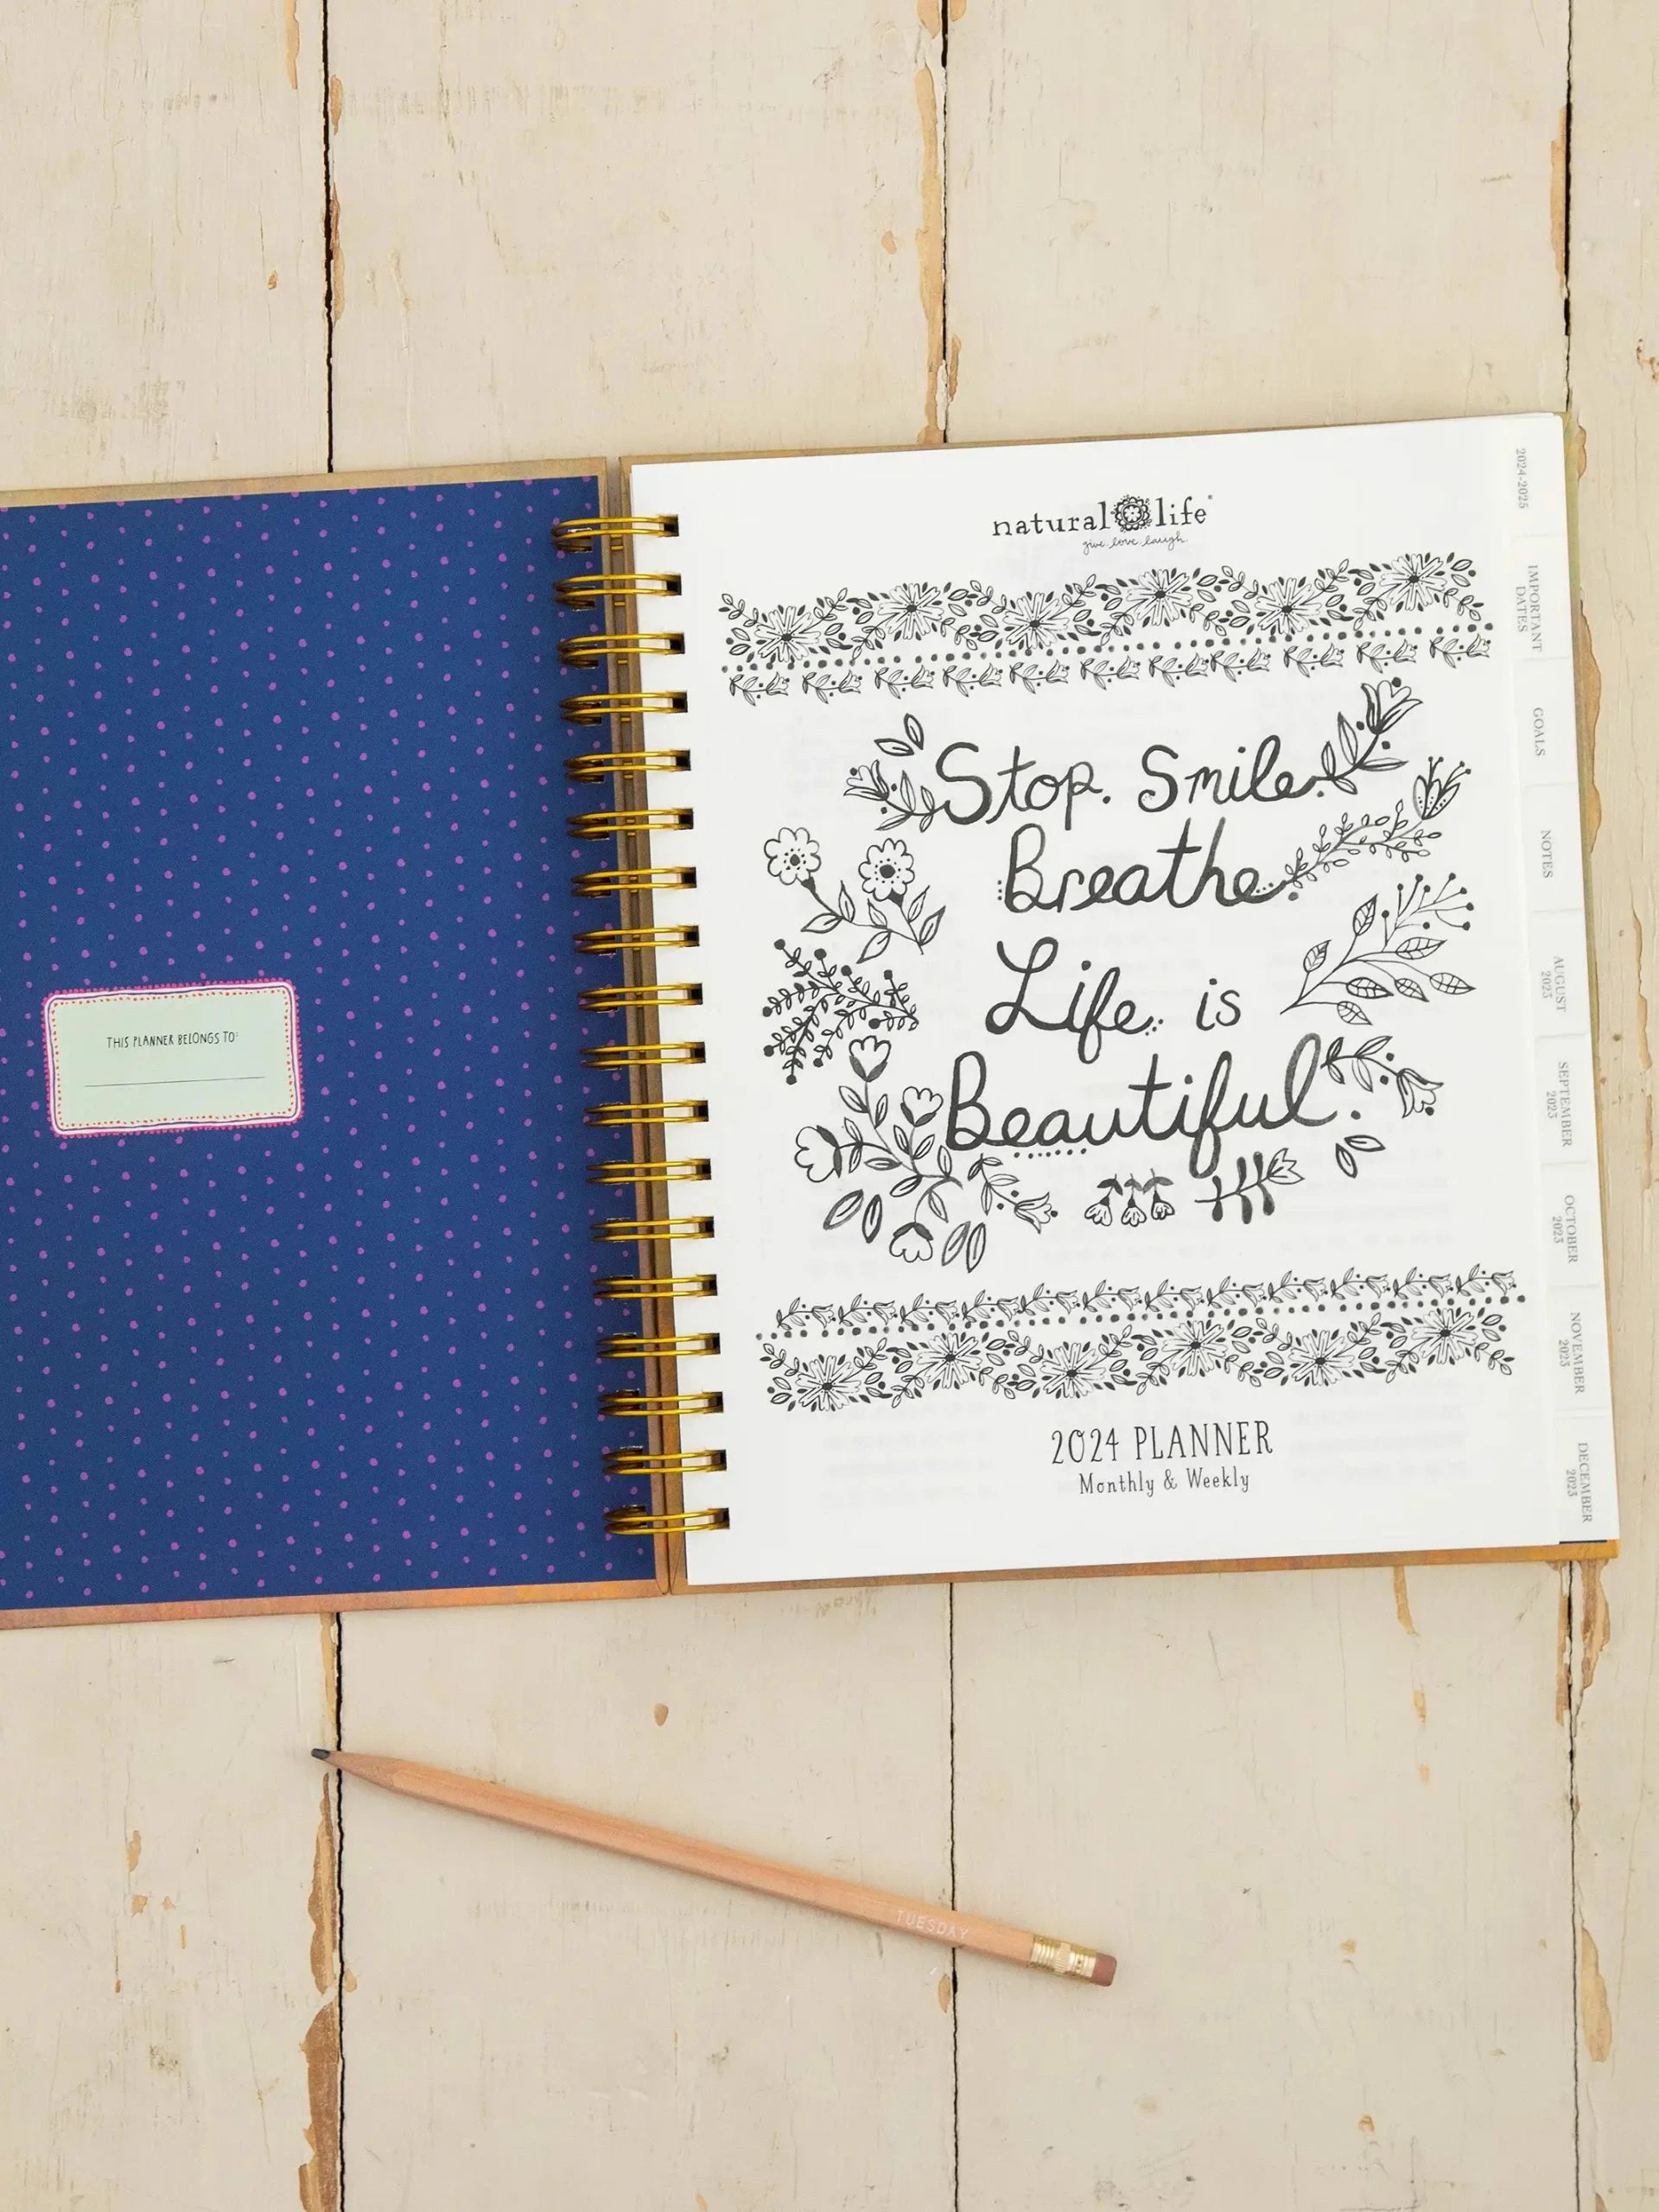 THIS PLANNER BELONGS TO:
natural life
give. love. laugh.
Stop. Smile.
Breathe.
Life is
Beautiful.
2024 PLANNER
Monthly & Weekly
2024-2025
IMPORTANT
DATES
GOALS
NOTES
AUGUST
2023
SEPTEMBER
2023
OCTOBER
2023
NOVEMBER
2023
DECEMBER
2023
TUESDAY